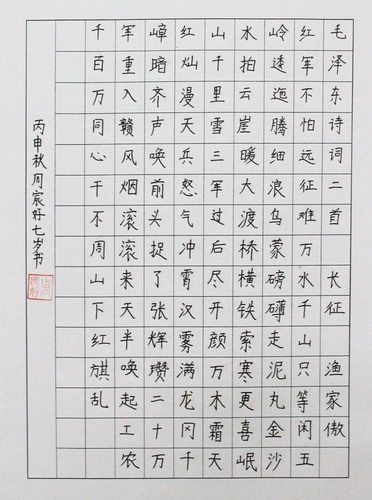 毛泽东诗词二首 长征 渔家傲
红军不怕远征难万水千山只等闲五
岭逶迤腾细浪乌蒙磅礴走泥丸金沙
水拍云崖暖大渡桥横铁索寒更喜岷
山千里雪三军过后尽开颜万木霜天
红灿漫天兵怒气冲霄汉雾满龙冈千
嶂暗齐声唤前头捉了张辉瓒二十万
军重入赣风烟滚滚来天半唤起工农
千百万同心干不周山下红旗乱
丙申秋周宸好七岁书